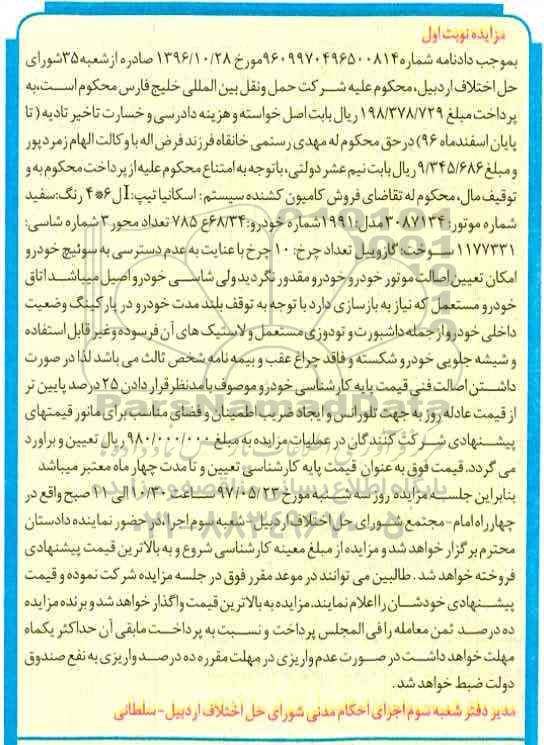 مزایده نوبت اول
بموجب دادنامه شماره ۹۶۰۹۹۷۰۴۹۶۵۰۰۸۱۴ مورخ ۱۳۹۶/۱۰/۲۸ صادره از شعبه ۳۵ شورای
حل اختلاف اردبیل، محکوم علیه شرکت حمل ونقل بین المللی خلیج فارس محکوم است، به
پرداخت مبلغ ۱۹۸/۳۷۸/۷۲۹ ریال بابت اصل خواسته و هزینه دادرسی و خسارت تاخیر تادیه (تا
پایان اسفندماه ۹۶) درحق محکوم له مهدی رستمی خانقاه فرزند فرض اله با وکالت الهام زمردپور
و مبلغ ۹/۳۴۵/۶۸۶ ریال بابت نیم عشر دولتی، باتوجه به امتناع محکوم علیه از پرداخت محکوم به و
توقیف مال، محکوم له تقاضای فروش کامیون کشنده سیستم: اسکانیا تیپ: ال ۶*۴ رنگ: سفید
شماره موتور: ۳۰۸۷۱۳۴ مدل: ۱۹۹۱ شماره خودرو: ۶۸/۳۴ع ۷۸۵ تعداد محور ۳ شماره شاسی:
۱۱۷۷۳۳۱ سوخت گازوییل تعداد چرخ: ۱۰ چرخ با عنایت به عدم دسترسی به سوئیچ خودرو
امکان تعیین اصالت موتور خودرو خودرو مقدور نگردید ولی شاسی خودرو اصیل میباشد اتاق
خودرو مستعمل که نیاز به بازسازی دارد با توجه به توقف بلند مدت خودرو در پارکینگ وضعیت
داخلی خودرو از جمله داشبورت و تودوزی مستعمل و لاستیک های آن فرسوده وغیر قابل استفاده
و شیشه جلویی خودرو شکسته و فاقد چراغ عقب و بیمه نامه شخص ثالث می باشد لذا در صورت
داشتن اصالت فنی قیمت پایه کارشناسی خودرو موصوف با مدنظر قرار دادن ۲۵ درصد پایین تر
از قیمت عادله روز به جهت تلورانس و ایجاد ضریب اطمینان و فضای مناسب برای مانور قیمتهای
پیشنهادی شرکت کنندگان در عملیات مزایده به مبلغ ۹۸۰/۰۰۰/۰۰۰ ریال تعیین و برآورد
می گردد. قیمت فوق به عنوان قیمت پایه کارشناسی تعیین و تا مدت چهار ماه معتبر میباشد
بنابراین جلسه مزایده روز سه شنبه مورخ ۹۷/۰۵/۲۳ ساعت ۱۰/۳۰ الی ۱۱ صبح واقع در
چهارراه امام - مجتمع شورای حل اختلاف اردبیل - شعبه سوم اجرا، در حضور نماینده دادستان
محترم برگزار خواهد شد و مزایده از مبلغ معینه کارشناسی شروع و به بالاترین قیمت پیشنهادی
فروخته خواهد شد. طالبین می توانند در موعد مقرر فوق در جلسه مزایده شرکت نموده و قیمت
پیشنهادی خودشان را اعلام نمایند. مزایده به بالاترین قیمت واگذار خواهد شد و برنده مزایده
ده درصد ثمن معامله را فی المجلس پرداخت و نسبت به پرداخت مابقی آن حداکثر یکماه
مهلت خواهد داشت در صورت عدم واریزی در مهلت مقرره ده درصد واریزی به نفع صندوق
دولت ضبط خواهد شد.
مدیر دفتر شعبه سوم اجرای احکام مدنی شورای حل اختلاف اردبیل - سلطانی
ParsNamadData
پایگاه اطلاع رسانی مناقصه و مزایده
۰۲۱-۸۸۳۴۹۶۷۰-۵